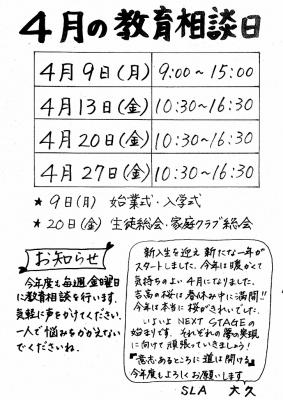 4月の教育相談日
4月9日(月) 9:00〜15:00
4月13日(金) 10:30〜16:30
4月20日(金) 10:30〜16:30
4月27日(金) 10:30〜16:30
★ 9日(月) 始業式・入学式
★ 20日(金) 生徒総会・家庭クラブ総会
お知らせ
今年度も毎週金曜日
に教育相談を行います。
気軽に声をかけてください。
一人で悩みをかかえない
でくださいね。
新入生を迎え 新たな一年が
スタートしました。今年は暖かくて
気持ちのよい4月になりました。
吉高の桜は春休み中に満開!!
今年は本当に桜がきれいでした。
いよいよ NEXT STAGEの
始まりです。それぞれの夢の実現
に向けて頑張っていきましょう!
『意志あるところに道は開ける』
今年度もよろしくお願いします
SLA 大久